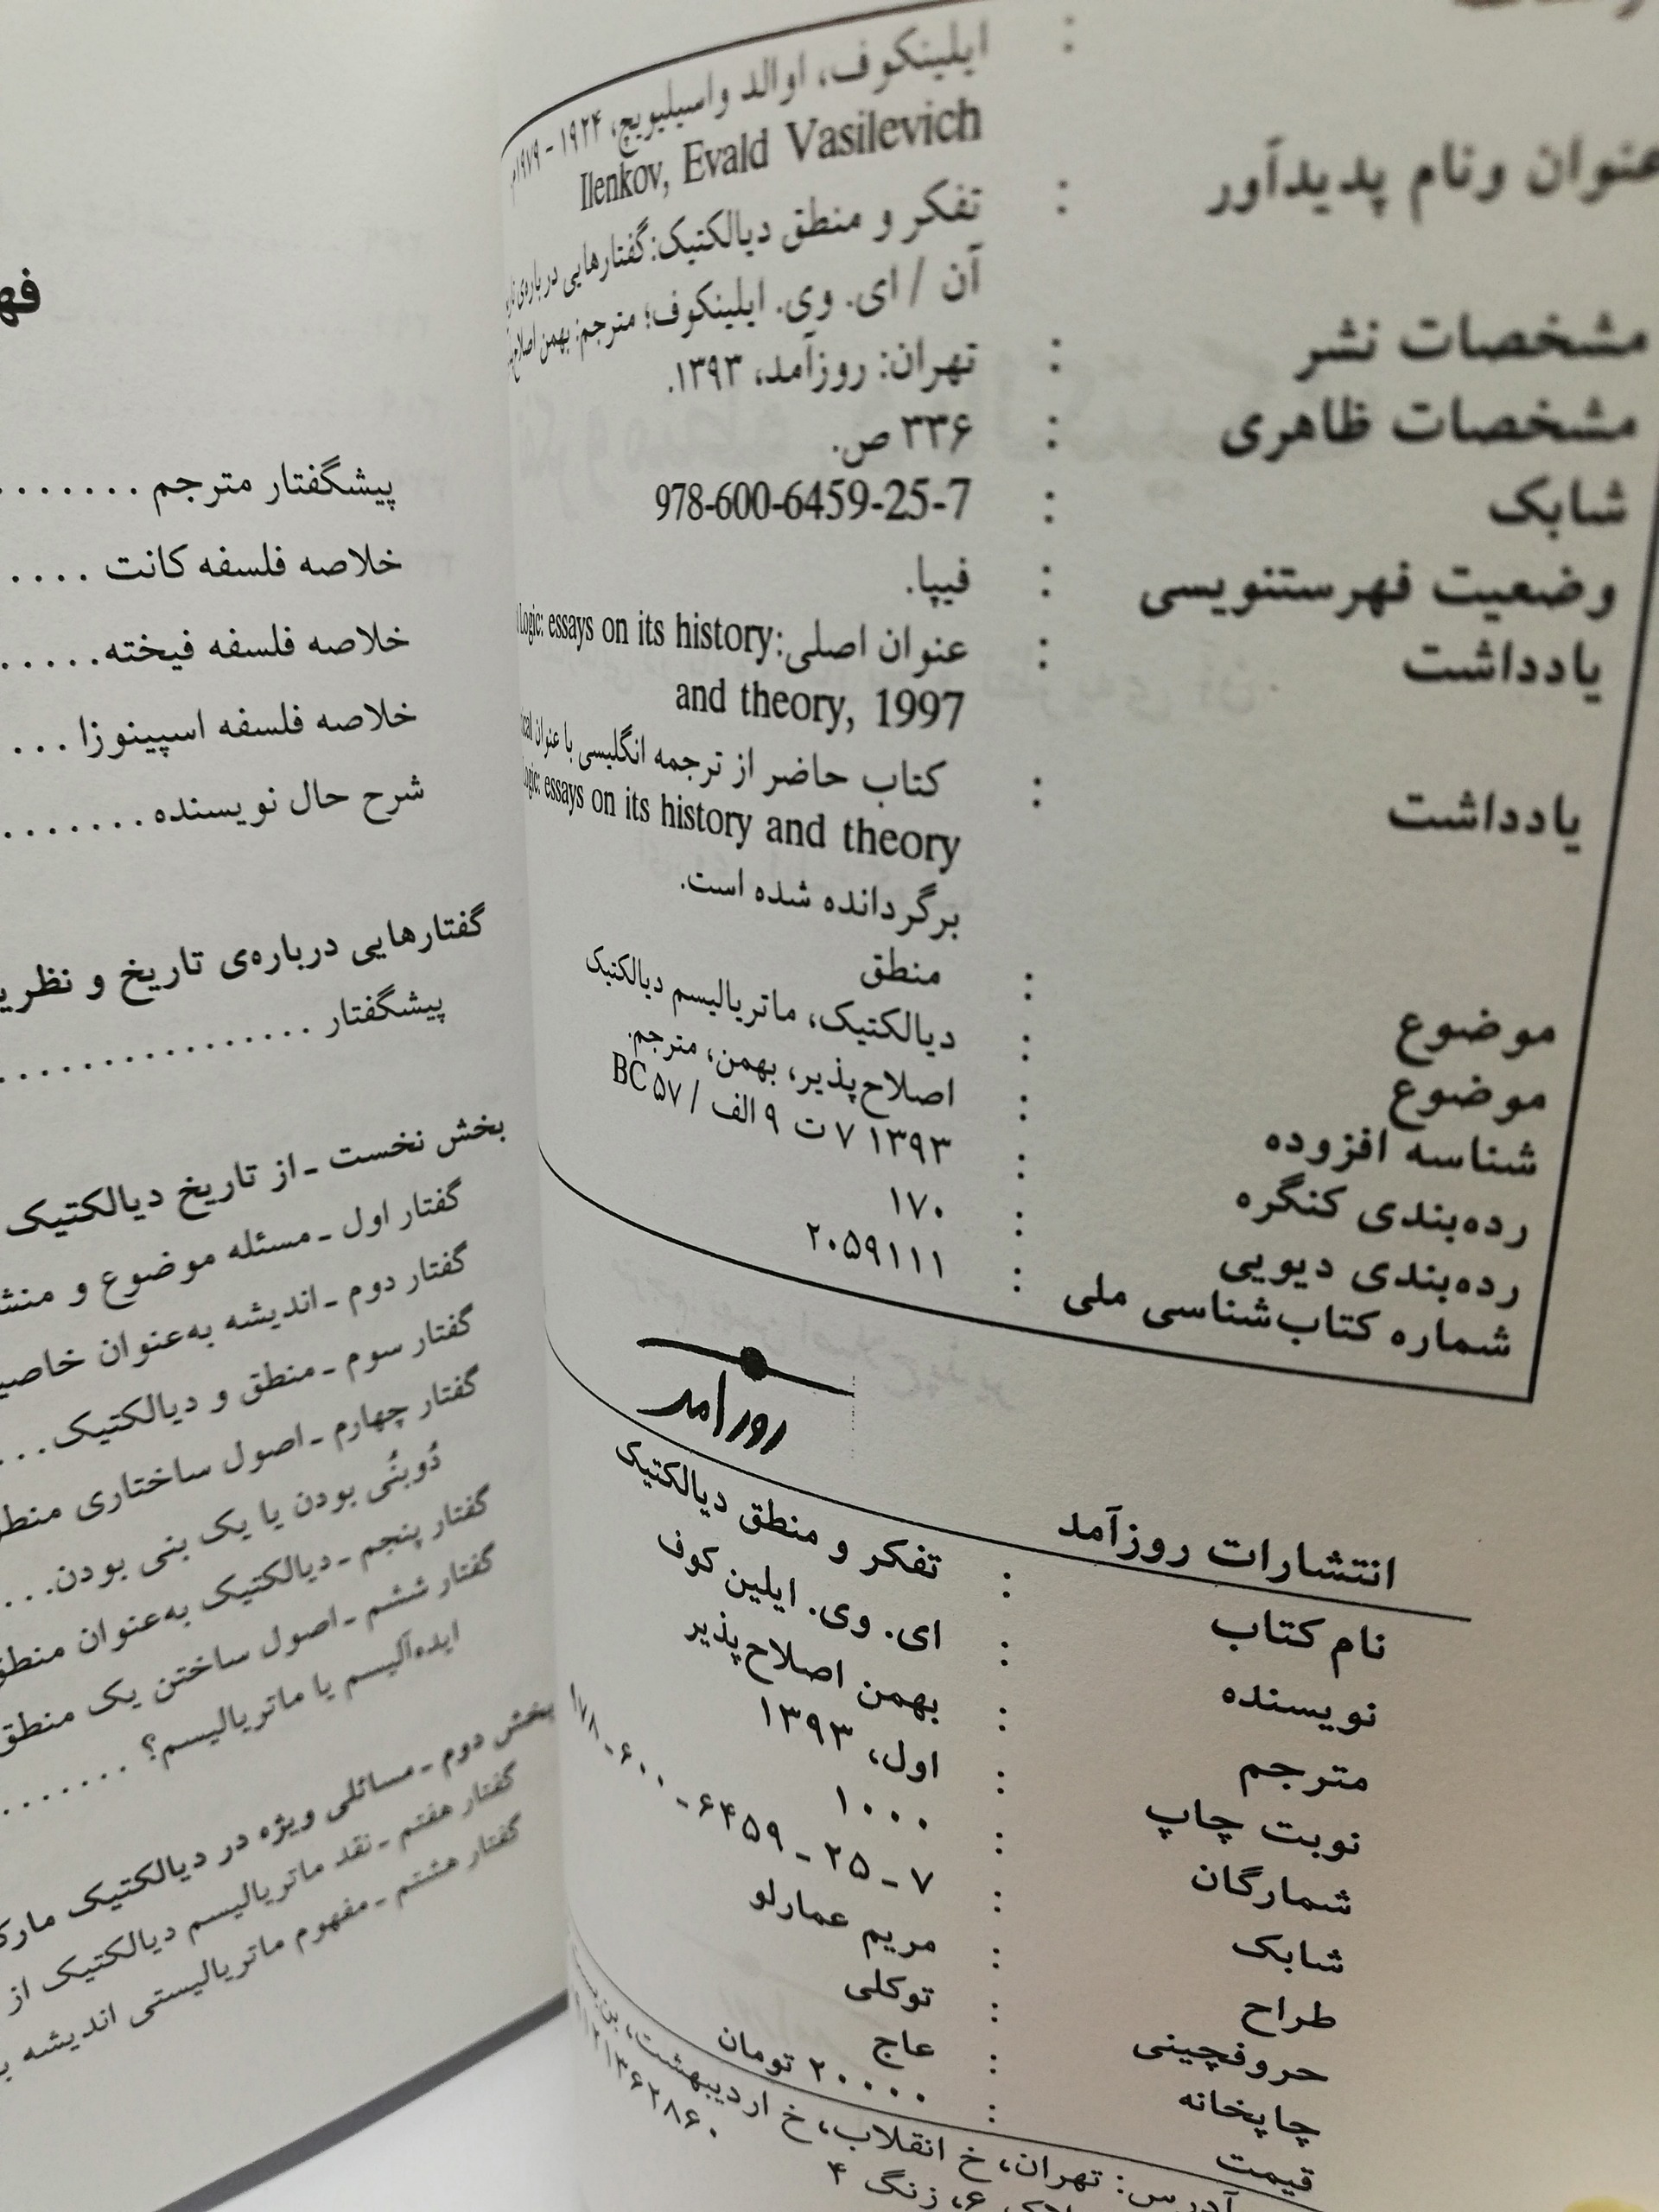 ایلینکوف، اوالد واسیلیویچ، ۱۹۲۴ - ۱۹۷۹م.
Ilenkov, Evald Vasilevich
عنوان و نام پدیدآور : تفکر و منطق دیالکتیک: گفتارهایی درباره‌ی
آن / ای. وی. ایلینکوف؛ مترجم: بهمن
مشخصات نشر : تهران: روزآمد، ۱۳۹۳.
مشخصات ظاهری : ۳۳۶ ص.
شابک : 978-600-6459-25-7
وضعیت فهرستنویسی : فیپا.
یادداشت : عنوان اصلی: Logic: essays on its history
and theory, 1997
یادداشت : کتاب حاضر از ترجمه انگلیسی با عنوان
Logic: essays on its history and theory
برگردانده شده است.
موضوع : منطق
موضوع : دیالکتیک، ماتریالیسم دیالکتیک
شناسه افزوده : اصلاح‌پذیر، بهمن، مترجم.
رده‌بندی کنگره : ۱۳۹۳ ۷ت ۹الف / BC۵۷
رده‌بندی دیویی : ۱۷۰
شماره کتاب‌شناسی ملی : ۲۰۵۹۱۱۱
روزآمد
انتشارات روزآمد
نام کتاب : تفکر و منطق دیالکتیک
نویسنده : ای. وی. ایلین کوف
مترجم : بهمن اصلاح‌پذیر
نوبت چاپ : اول، ۱۳۹۳
شمارگان : ۱۰۰۰
شابک : ۷ - ۲۵ - ۶۴۵۹ - ۶۰۰ -
طراح : مریم عمارلو
حروفچینی : توکلی
چاپخانه : عاج
قیمت : ۲۰۰۰۰ تومان
آدرس: تهران، خ انقلاب، خ اردیبهشت،
۶، زنگ ۴
پیشگفتار مترجم . . . . . . .
خلاصه فلسفه کانت . . . .
خلاصه فلسفه فیخته. . . . . .
خلاصه فلسفه اسپینوزا . . .
شرح حال نویسنده . . . . . . .
گفتارهایی درباره‌ی تاریخ و
پیشگفتار . . . . . . . . . . . . . . . .
بخش نخست ـ از تاریخ دیالکتیک
گفتار اول ـ مسئله موضوع و
گفتار دوم ـ اندیشه به‌عنوان
گفتار سوم ـ منطق و دیالکتیک. . .
گفتار چهارم ـ اصول ساختاری
دُوبنُی بودن یا یک بنی بودن. . . .
گفتار پنجم ـ دیالکتیک به‌عنوان منطق
گفتار ششم ـ اصول ساختن یک منطق
ایده‌آلیسم یا ماتریالیسم؟ . . . . . . . .
بخش دوم ـ مسائلی ویژه در دیالکتیک
گفتار هفتم ـ نقد ماتریالیسم دیالکتیک از
گفتار هشتم ـ مفهوم ماتریالیستی اندیشه